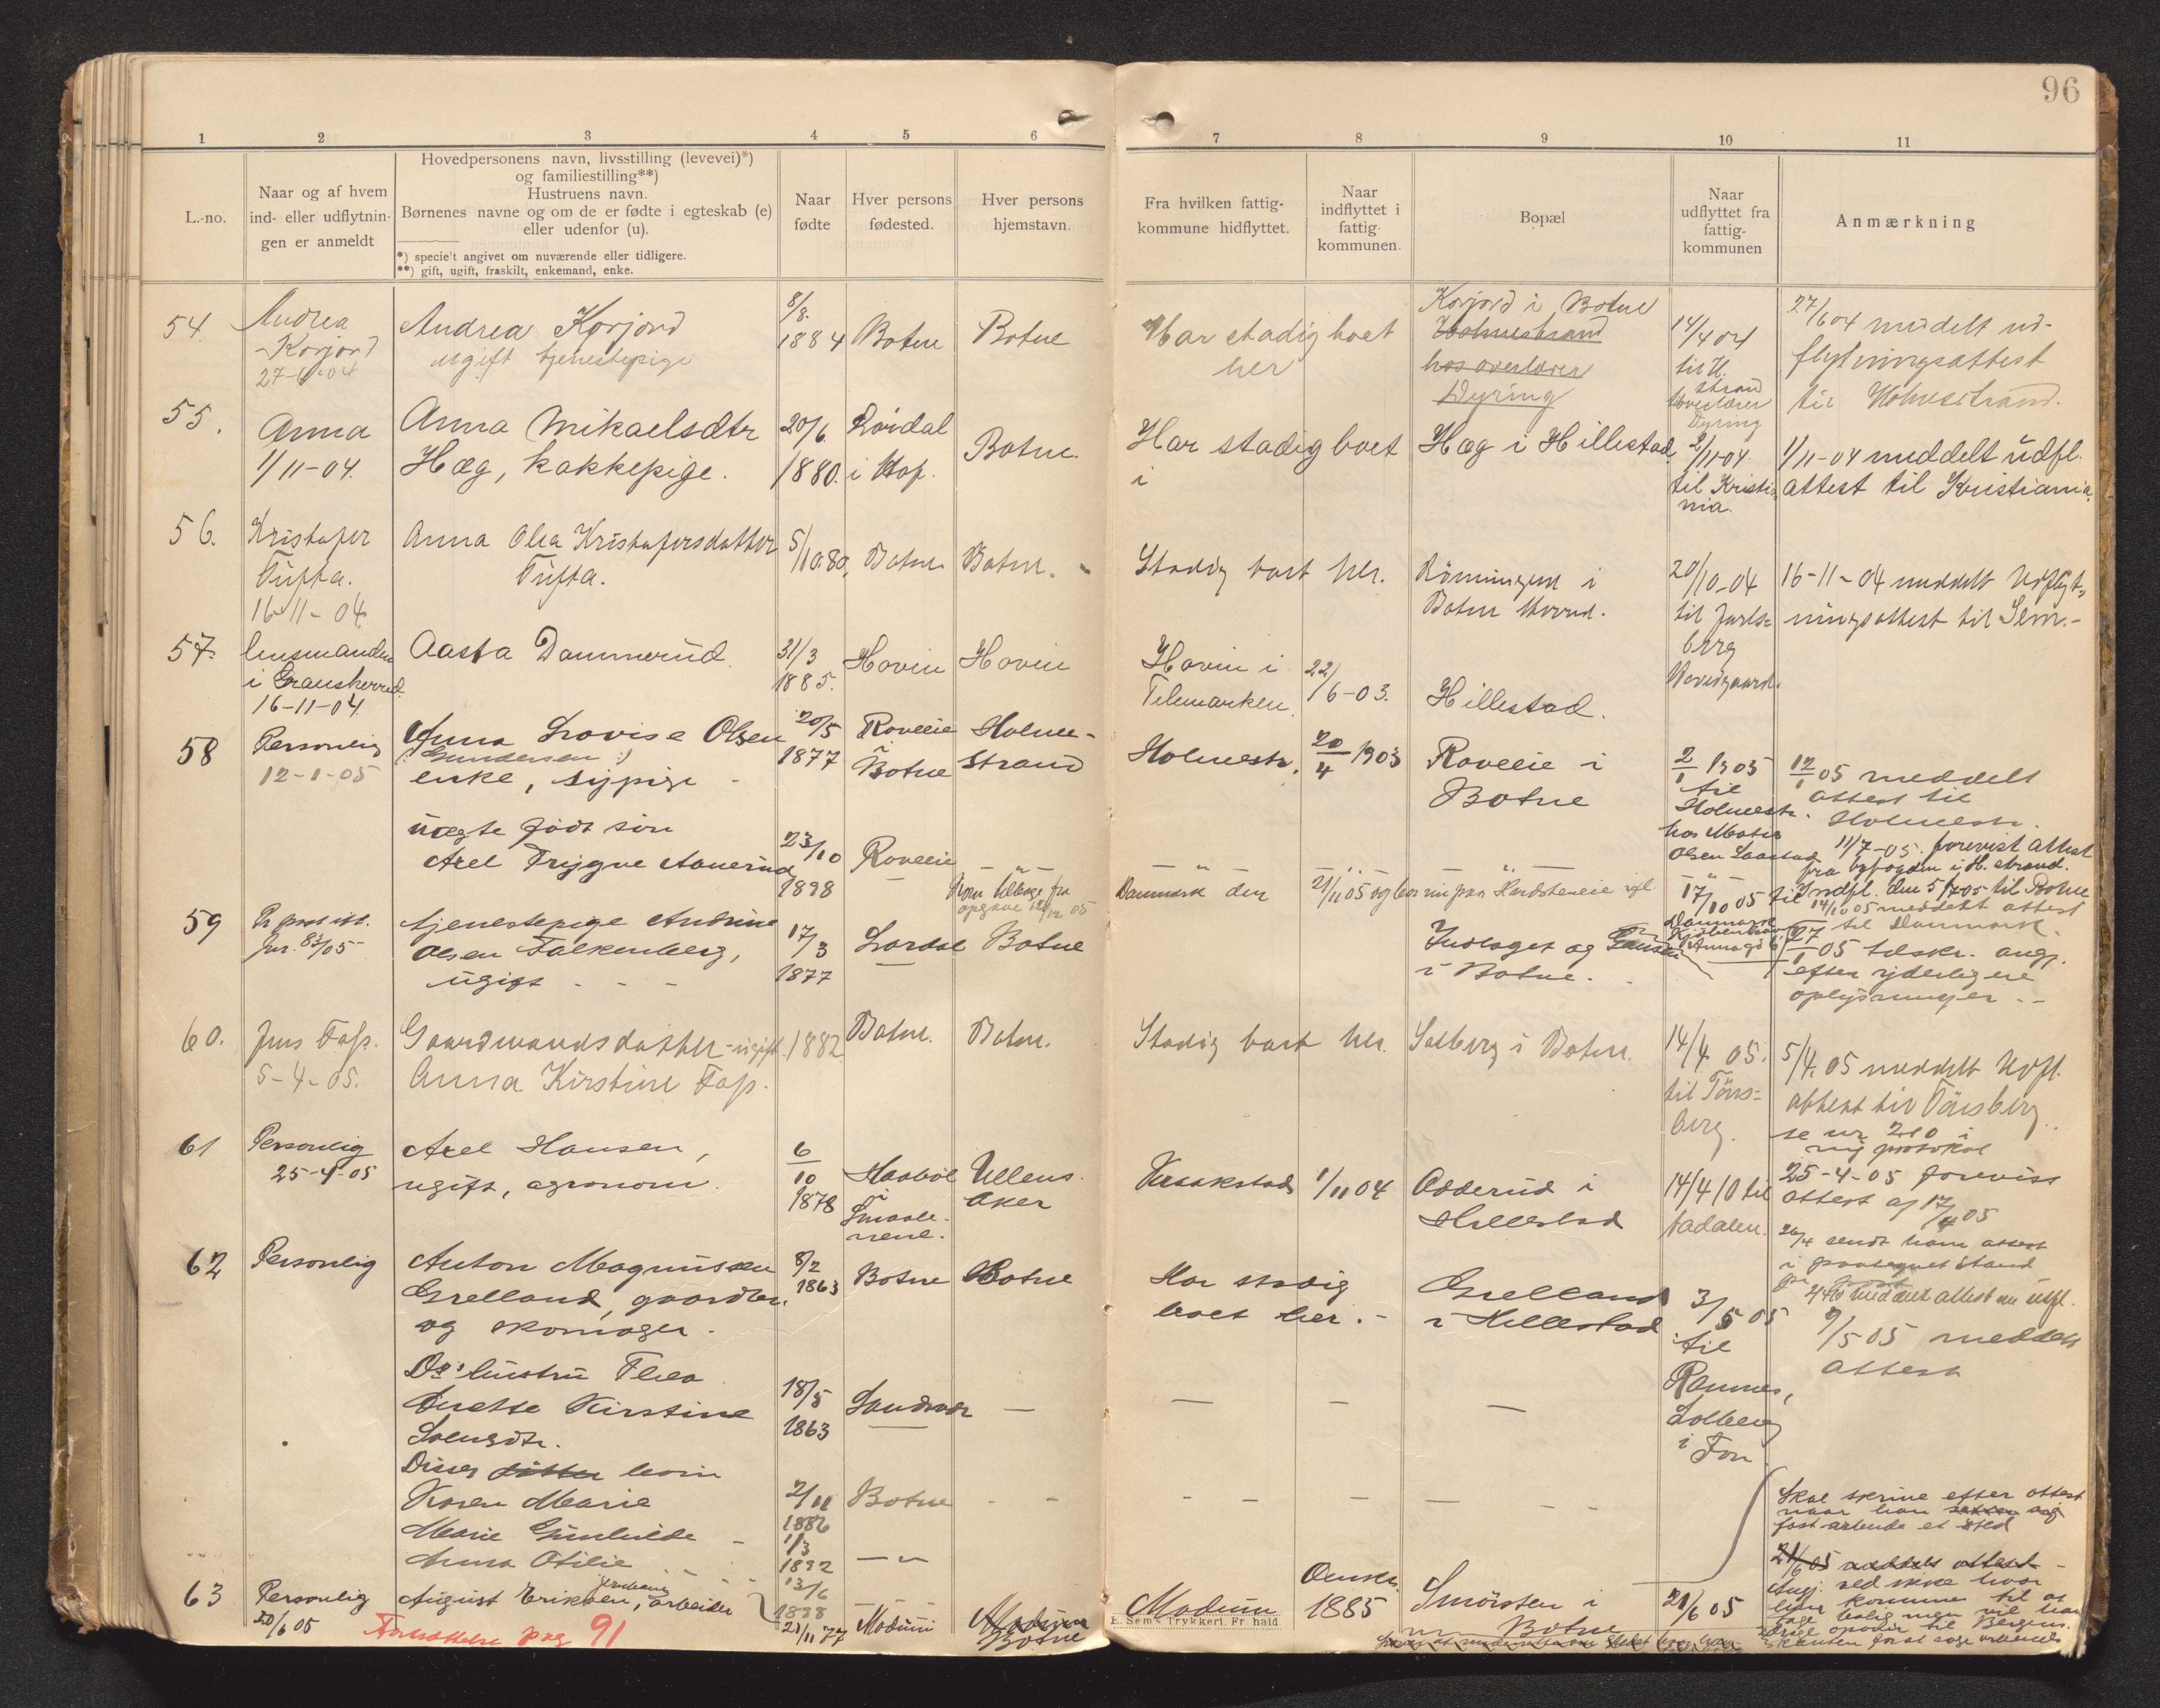 96
1 2 3 4 5 6 7 8 9 10 11
L.-no.
Naar og af hvem
ind- eller udflytnin-
gen er anmeldt
Hovedpersonens navn, livsstilling (levevei)*)
og familiestilling**)
Hustruens navn.
Børnenes navne og om de er fødte i egteskab (e)
eller udenfor (u).
*) specielt angivet om nuværende eller tidligere.
**) gift, ugift, fraskilt, enkemand, enke.
Naar
fødte
Hver persons
fødested.
Hver persons
hjemstavn.
Fra hvilken fattig-
kommune hidflyttet.
Naar
indflyttet i
fattig-
kommunen.
Bopæl
Naar
udflyttet fra
fattig-
kommunen
Anmærkning
54.
Andrea
Korjord
27-6-04
Andrea Korjord
ugift tjenestepige
8/8.
1884
Botne
Botne
Har stadig boet
her
Korjord i Botne
Holmestrand
hos overlærer
Dyring
14/4 04
til H.
strand
overlærer
Dyring
27/6 04 meddelt ud-
flytningsattest
til Holmestrand.
55.
Anna
1/11-04.
Anna Mikaelsdtr
Hæg, kokkepige.
20/6.
1880.
i Hof.
Botne.
Har stadig boet
i
Hæg i Hillestad.
2/11-04.
til Kristia
nia.
1/11-04 meddelt udfl.
attest til Kristiania.
56.
Kristofer
Tufta.
16-11-04.
Anna Olea Kristofersdatter
Tufta.
5/10.80.
Botne
Botne.
Stadig vært her.
Rönningen i
Botne
20/10-04
til Jarls-
berg
Hovedgaard.
16-11-04 meddelt Udflyt-
ningsattest til Sem.-
57.
lensmanden
i Gransherred.
16-11-04.
Aasta Dammerud.
31/3
1885.
Hovin
Hovin
Hovin i
Telemarken.
22/6-03.
Hillestad.
58
Personlig
12-1-05
Anna Lovise Olsen
(Gundersen)
enke, sypige -
20/5
1877
Roveie
i
Botne
Holme-
strand
Holmestr.
20/4 1903
Roveie i
Botne
2/1 1905
til
Holmestr.
hos
Olsen
12/1 05 meddelt
attest til
Holmestr.
11/7-05. forevist attest
fra byfogden i H.strand.
Indfl. den 5/7 05 til Botne
uægte født søn
Axel Trygve Aanerud
23/10
1898
Roveie
Kom tilbage fra
Danmark den
21/11 05 og bor nu paa
17/10 05 til
Danmark
14/10 05 meddelt attest
til Danmark.
59
tjenestepige Andrine
Olsen Falkenberg,
ugift - - -
17/3
1877
Lardal
Botne
i Botne.
27/1 05 tilskr. ang.
efter yderligere
oplysninger --
60.
Jens Fass.
5-4-05.
Gaardmandsdatter - ugift.
Anna Kirstine Fass.
1882
Botne.
Botne.
Stadig vært her.
Solberg i Botne.
14/4 05.
til Töns-
berg.
5/4. 05 meddelt Udfl.
attest til Tönsberg.
se nr 210 i
ny protokol
61
Personlig
25-4-05
Axel Hansen,
ugift, agronom.
6/10
1878
Haabøl
i
Smaale-
nene.
Ullens-
aker
Kraakstad
1/11 04
Odderud i
Hillestad
14/4 10 til
Aadalen.
25-4-05 forevist
attest af 17/4 05
26/4 sendt ham attest
i paategnet stand
62
Personlig
Anton Magnussen
Grelland, gaardbr.
og skomager.
8/2
1863
Botne
Botne
Har stadig
boet her. -
Grelland
i Hillestad
3/5 05
til
Ramnes,
Solberg
i Fon
9/5 05 meddelt
attest
Ds hustru Thea
Anette Kirstine
18/5
1863
Sandsvær
Disses døtter børn
Karen Marie
2/11
1886
Botne
Marie Gunhilde
1/3
1892
Anna Otilie
13/6
1898
63
Personlig
20/6 05
August Eriksen, arbeider
21/11 77
Modum
Modum
Botne
Modum
Önsker
1885
Smörsten i
Botne
21/6 05
Skal skrive efter attest
naar han
fast arbeide et sted
21/6 05 meddelt attest
Ang. ved ikke hvor
han kommer til at
tage bolig men vil
drage opover til Bergens-
kanten for at søge arbeide
Fortsættelse pag 91
E. Sem's Trykkeri, Fr.hald